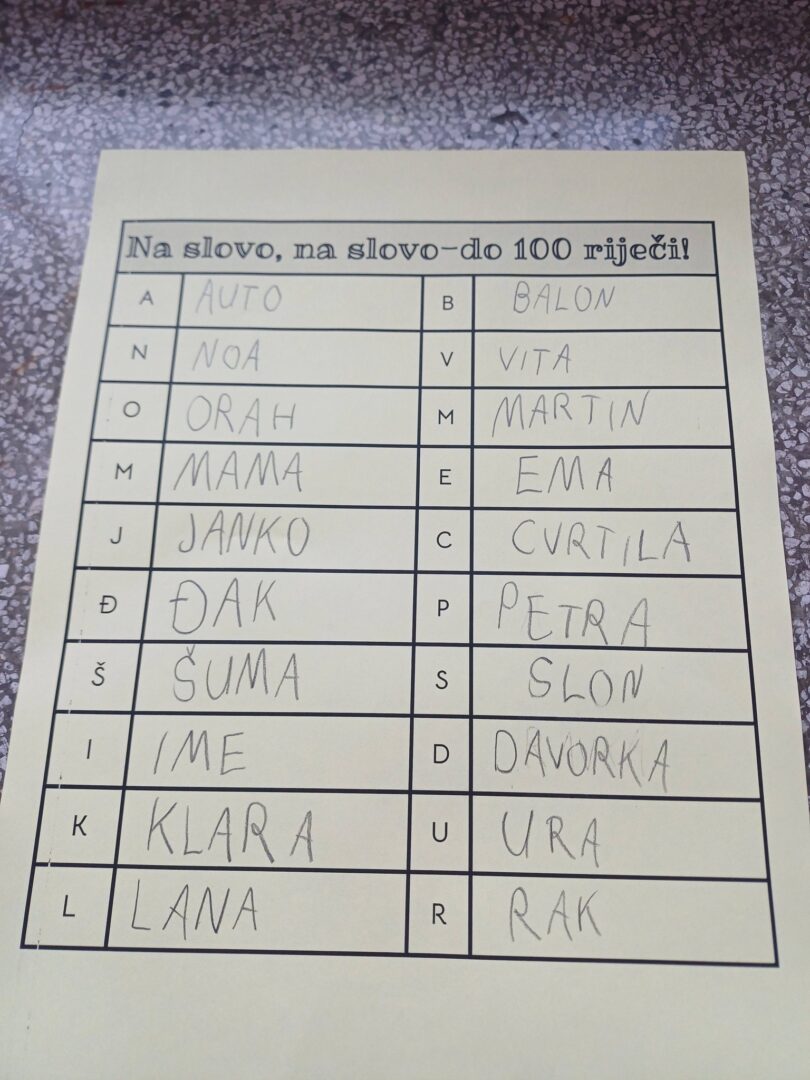 Na slovo, na slovo-do 100 riječi!
A AUTO B BALON
N NOA V VITA
O ORAH M MARTIN
M MAMA E EMA
J JANKO C CVRTILA
Đ ĐAK P PETRA
Š ŠUMA S SLON
I IME D DAVORKA
K KLARA U URA
L LANA R RAK